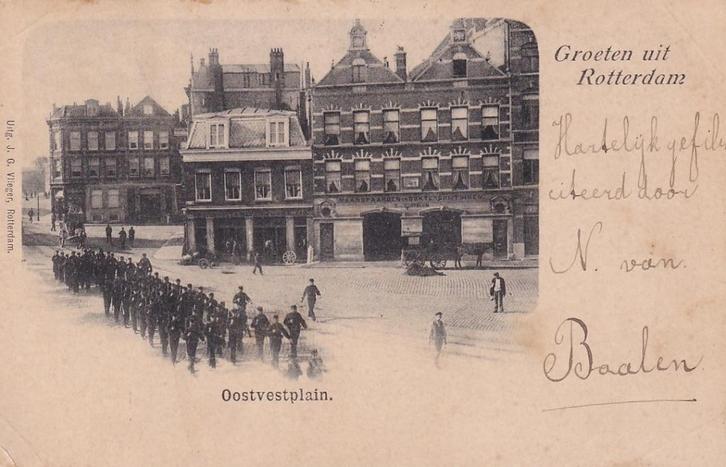 Groeten uit
Rotterdam
Hartelijk gefili
citeerd door
N. van
Baalen
Oostvestplain.
Uitg. J. G. Vlieger, Rotterdam.